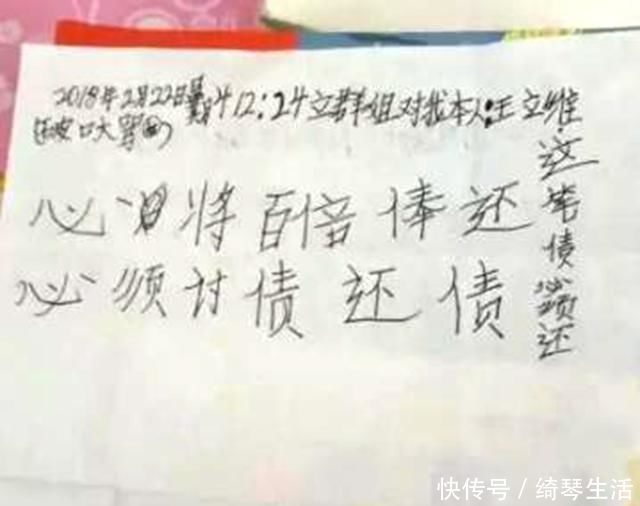 2018年2月22日星期4 12:24立群姐对我本人王立维
(破口大骂)
必将百倍俸还
必须讨债还债
这笔债必须还
快传号/绮琴生活